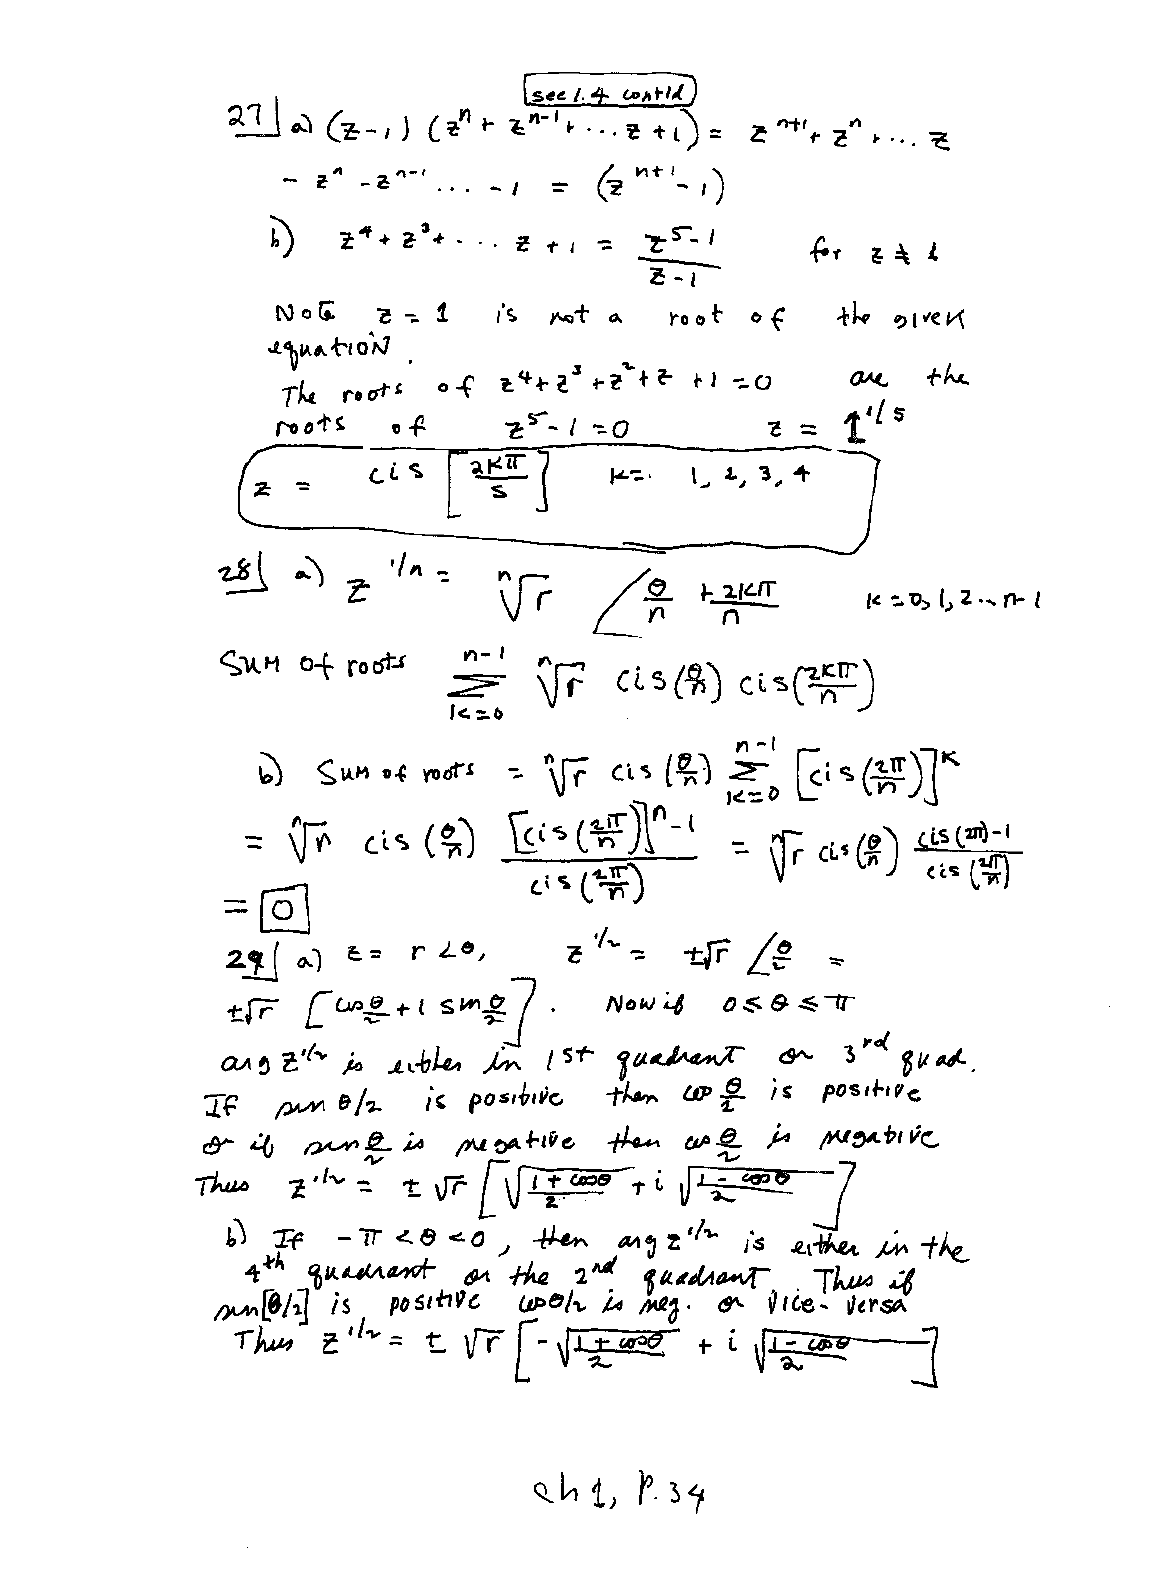 sec 1.4 cont'd
27 a) (z-1) (zⁿ + zⁿ⁻¹ + ... z + 1) = zⁿ⁺¹ + zⁿ + ... z
- zⁿ - zⁿ⁻¹ ... - 1 = (zⁿ⁺¹ - 1)
b) z⁴ + z³ + ... z + 1 = (z⁵-1)/(z-1) for z ≠ 1
Note z = 1 is not a root of the given
equation.
The roots of z⁴ + z³ + z² + z + 1 = 0 are the
roots of z⁵ - 1 = 0 z = 1^(1/5)
z = cis [2kπ/5] k = 1, 2, 3, 4
28 a) z^(1/n) = ⁿ√r ∠ θ/n + 2kπ/n k = 0, 1, 2 ... n-1
Sum of roots Σ_(k=0)^(n-1) ⁿ√r cis(θ/n) cis(2kπ/n)
b) Sum of roots = ⁿ√r cis(θ/n) Σ_(k=0)^(n-1) [cis(2π/n)]^k
= ⁿ√r cis(θ/n) ([cis(2π/n)]ⁿ - 1)/(cis(2π/n)) = ⁿ√r cis(θ/n) (cis(2π) - 1)/(cis(2π/n))
= 0
29 a) z = r∠θ, z^(1/2) = ±√r ∠θ/2 =
±√r [cos θ/2 + i sin θ/2]. Now if 0 ≤ θ ≤ π
arg z^(1/2) is either in 1st quadrant or 3rd quad.
If sin θ/2 is positive then cos θ/2 is positive
or if sin θ/2 is negative then cos θ/2 is negative
Thus z^(1/2) = ±√r [√((1 + cosθ)/2) + i √((1 - cosθ)/2)]
b) If -π < θ < 0, then arg z^(1/2) is either in the
4th quadrant or the 2nd quadrant. Thus if
sin[θ/2] is positive cos θ/2 is neg. or vice-versa
Thus z^(1/2) = ± √r [-√((1 + cosθ)/2) + i √((1 - cosθ)/2)]
ch 1, P. 34